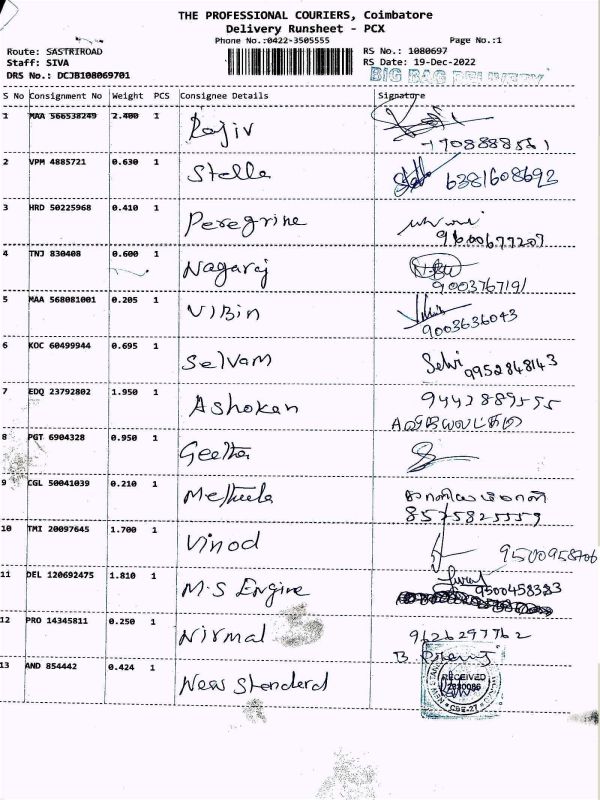 THE PROFESSIONAL COURIERS, Coimbatore
Delivery Runsheet - PCX
Phone No.:0422-3505555 Page No.:1
Route: SASTRIROAD RS No.: 1080697
Staff: SIVA RS Date: 19-Dec-2022
DRS No.: DCJB108069701 BIG BAG DELIVERY
S No Consignment No Weight PCS Consignee Details Signature
1 MAA 566538249 2.400 1 Rajiv
7708888561
2 VPM 4885721 0.630 1 Stella 6381608692
3 HRD 50225968 0.410 1 Peregrine
9600677207
4 TNJ 830408 0.600 1 Nagaraj
9003767191
5 MAA 568081001 0.205 1 Vibin
9003636043
6 KOC 60499944 0.695 1 Selvam Selvi 9952848143
7 EDQ 23792802 1.950 1 Ashokan 9442889555
8 PGT 6904328 0.950 1 Geetha
9 CGL 50041039 0.210 1
8575825559
10 TMI 20097645 1.700 1 Vinod 9500958706
11 DEL 120692475 1.810 1 M.S Engine 9500458383
12 PRO 14345811 0.250 1 Nirmal 9626297762
13 AND 854442 0.424 1 New Standard RECEIVED
CBE-27